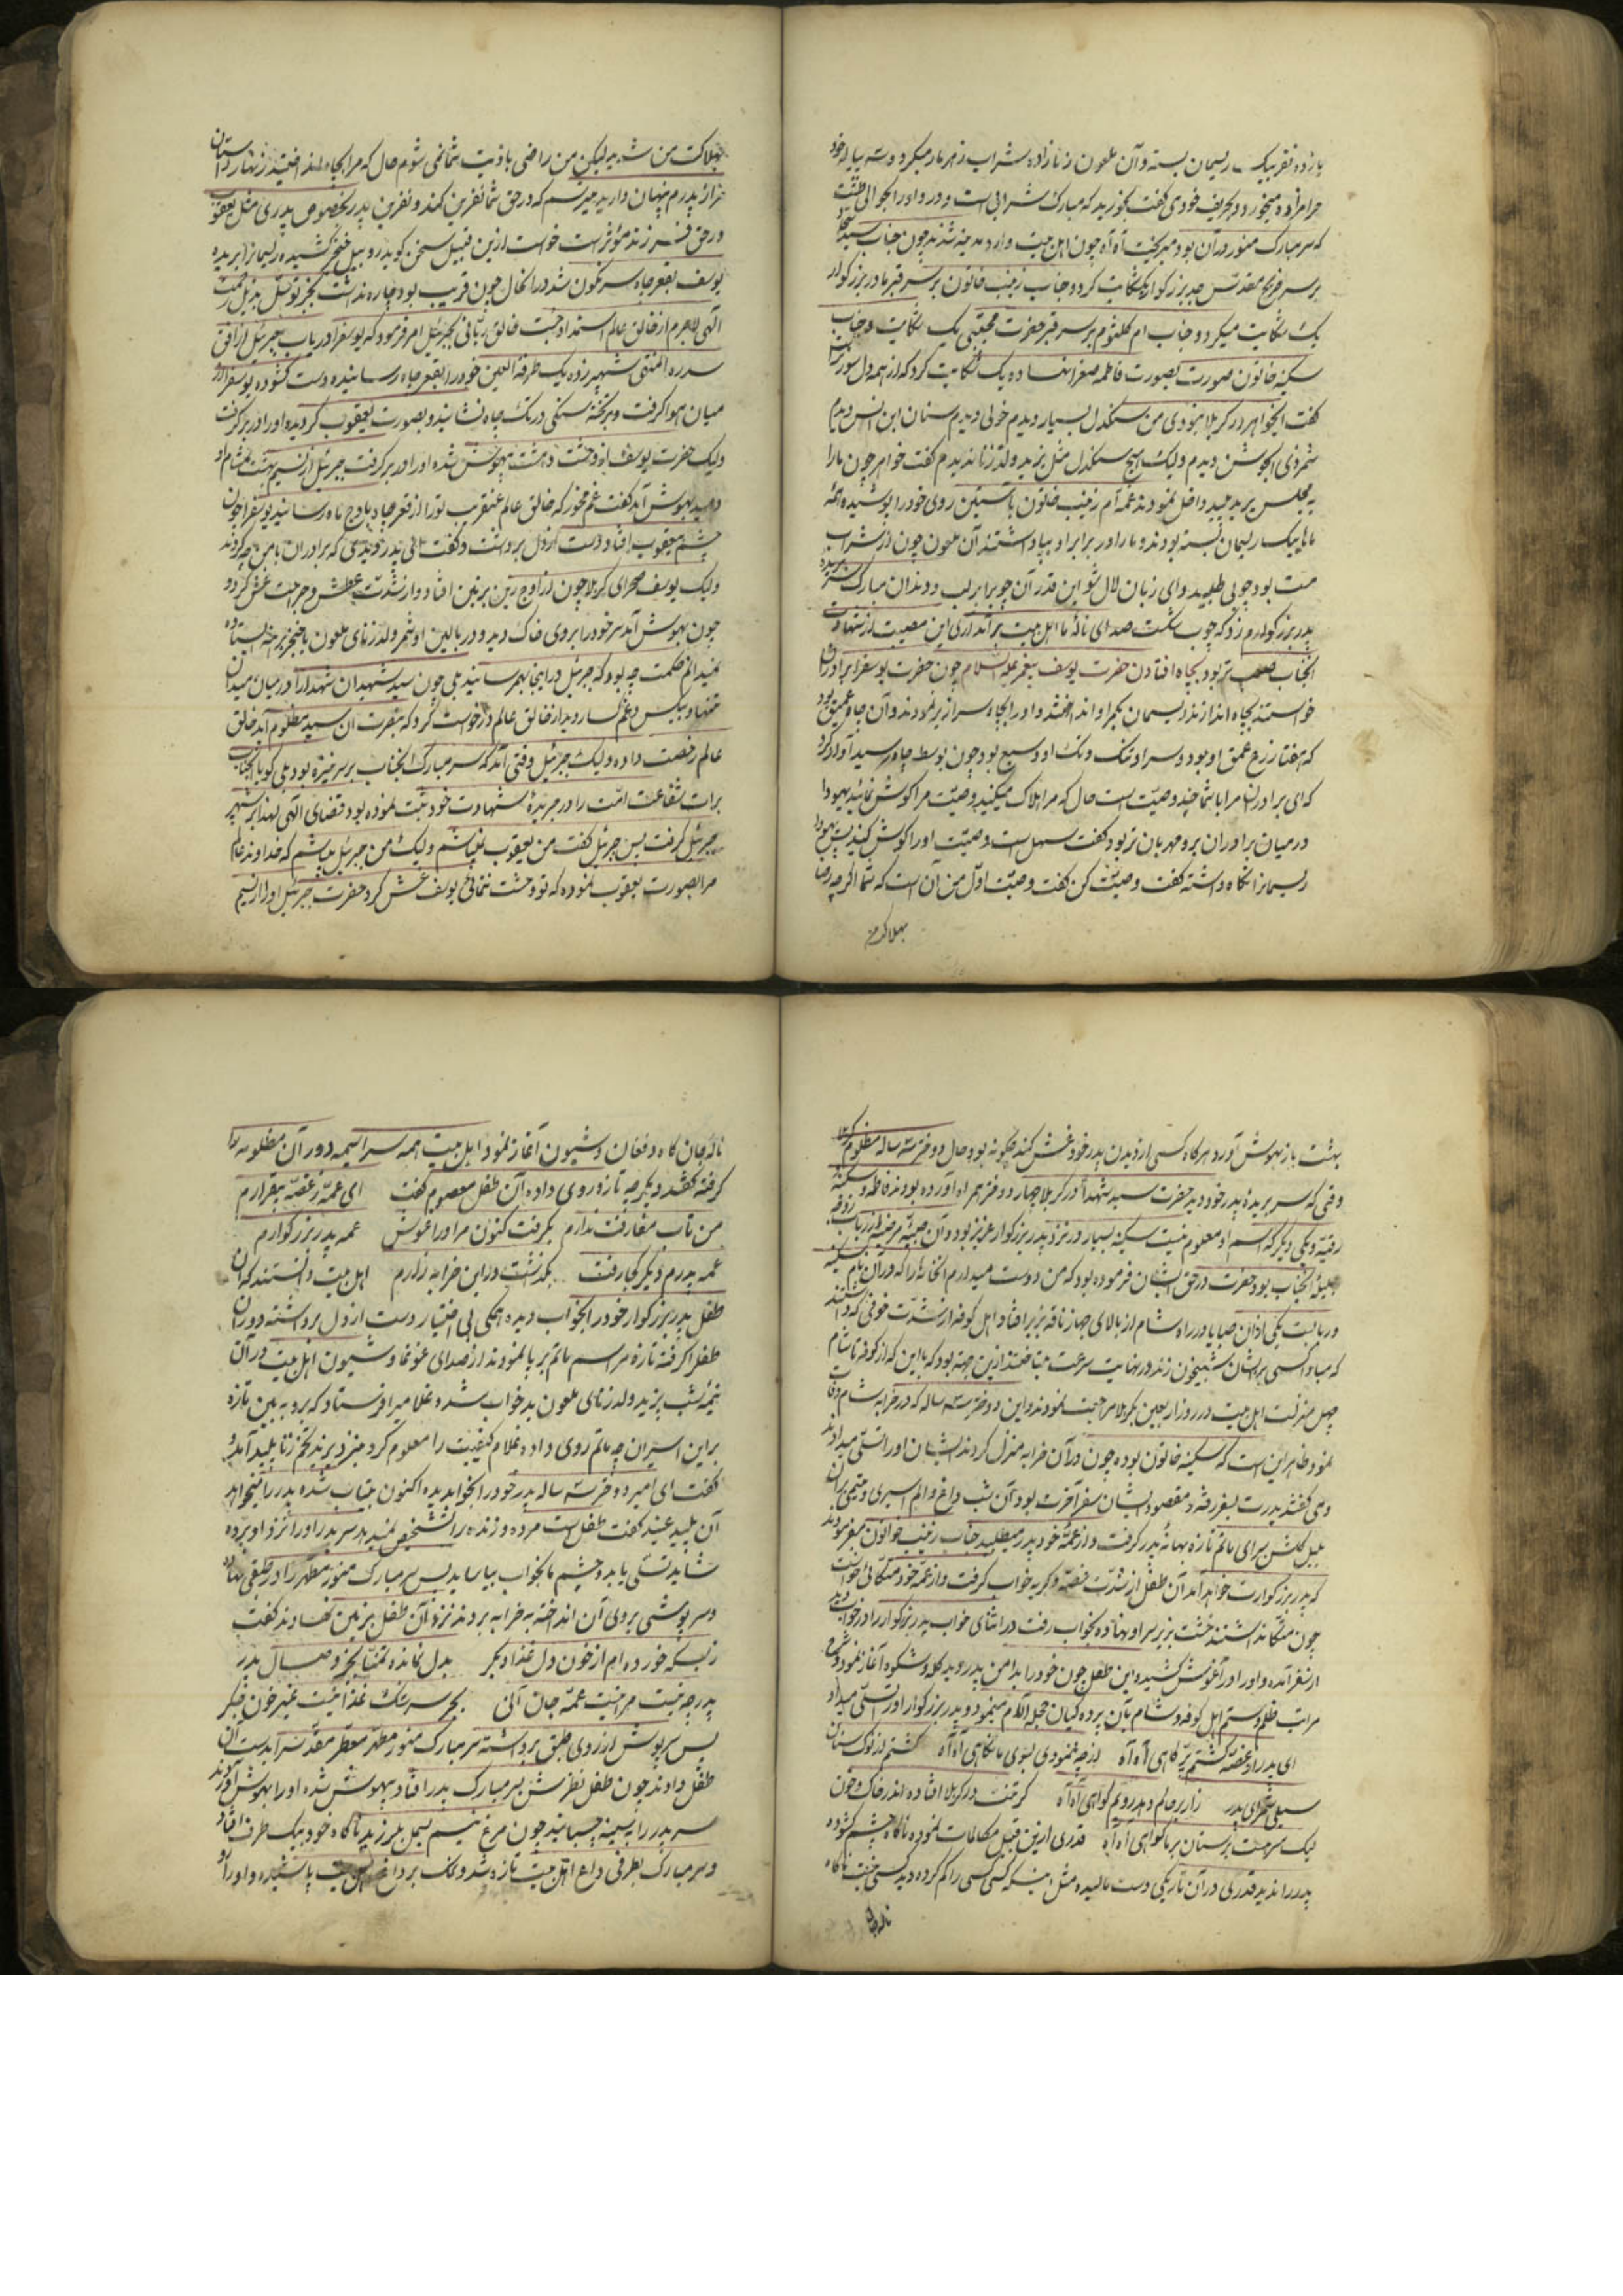 یازده نفر بیک ریسمان بسته و آن ملعون زنازاده شراب زهرمار میکرد و ته پیاله خود
حرامزاده میخورد و بحریف خودی گفت بخورید که مبارک شرابی است و درد او را بحوالی طشت
که سر مبارک منور در آن بود میریخت آه آه چون اهل بیت وارد مدینه شدند چون جناب سید سجاد
بر سر ضریح مقدس جد بزرگوار یک شکایت کرد و جناب زینب خاتون بر سر قبر مادر بزرگوار
یک شکایت میکرد و جناب ام کلثوم بر سر قبر حضرت مجتبی یک شکایت و جناب
سکینه خاتون صورت بصورت فاطمه صغرا نهاده یک شکایت کرد که از همه دل سوز
گفت ایخواهر در کربلا نبودی من سنگدل بسیار دیدم خولی دیدم سنان ابن انس دیدم
شمر ذی الجوشن دیدم ولیک هیچ سنگدل مثل یزید ولد زنا ندیدم گفت خواهر چون ما را
به مجلس یزید پلید داخل نمودند عمه‌ام زینب خاتون با آستین روی خود را پوشیده همه
ما بیک ریسمان بسته بودند و ما را در برابر او بپا داشتند آن ملعون چون از شراب
مست بود چوبی طلبید و ای زبان لال شو این قدر آن چوب را بر لب و دندان مبارک سر بریده
پدر بزرگوارم زد که چوب شکست صدای ناله ما اهل بیت برآمد آری این مصیبت از شهادت
انجناب صعب تر بود بچاه افتادن حضرت یوسف پیغمبر علیه السلام چون حضرت یوسف را برادران
خواستند بچاه اندازند ریسمان بکمر او انداختند و او را بچاه سرازیر نمودند و آن چاه عمیق بود
که هفتاد زرع عمق او بود و سر او تنک و تک او وسیع بود چون بوسط چاه رسید آواز کرد
که ای برادران مرا با شما چند وصیّت است حال که مرا هلاک میکنید وصیّت مرا گوش نمائید یهودا
در میان برادران برو مهربان تر بود گفت سهل است وصیّت او را گوش کنید پس یهودا
ریسمانرا نگاه داشته گفت وصیّت کن گفت وصیّت اوّل من آن است که شما اگرچه رضا
بهلاکت من
بهلاکت من شدید لیکن من راضی باذیت شما نمی شوم حال که مرا بچاه انداختید زنهار داستان
مرا از پدرم پنهان دارید میترسم که در حق شما نفرین کند و نفرین پدر بخصوص پدری مثل یعقوب
در حق فرزند مؤثر است خواست ازین قبیل سخن گوید روبیل خنجر کشیده ریسمانرا بریده
یوسف بقعر چاه سرنگون شد در انحال چون غریب بود چاره نداشت بجز توسل بذیل رحمت
الهی لاجرم از خالق عالم استمداد جست خالق ربّانی بجبرئیل امر فرمود که یوسف را دریاب جبرئیل از افق
سدره المنتهی شهپر زده بیک طرفة العین خود را بقعر چاه رسانیده دست کشوده یوسف را در
میان هوا گرفت و بر تخته سنگی در تک چاه نشانید و بصورت یعقوب گردیده او را در بر گرفت
ولیک حضرت یوسف از وحشت و دهشت بیهوش شده او را در بر گرفت جبرئیل از نسیم بهشت بمشام او
دمید بهوش آمد گفت غم مخور که خالق عالم عنقریب تو را از قعر چاه باوج ماه رسانید یوسف را چون
چشم بیعقوب افتاد دست از دل برداشت و گفت ای پدر دیدی که برادران با من چه کردند
ولیک یوسف صحرای کربلا چون از اوج زین بر زمین افتاد و از شدّت عطش و جراحت غش کرد و
چون بهوش آمد سر خود را بروی خاک دید و در بالین او شمر ولد زنای ملعون با خنجر برهنه ایستاده
نمیدانم حکمت چه بود که جبرئیل در اینجا بهم رسانید بلی چون سید شهیدان شهدا را در میان میدان
تنها و بیکس و غمگسار دید از خالق عالم درخواست کرد که بنصرت ان سید مظلوم آمد خالق
عالم رخصت داده ولیک جبرئیل وقتی آمد که سر مبارک انجناب بر سر نیزه بود بلی گویا انجناب
برات شفاعت امّت را در جریدهٔ شهادت خود ثبت نموده بود قضای الهی لهذا بر شهپر
جبرئیل گرفت پس جبرئیل گفت من یعقوب نمیباشم ولیک من جبرئیل میباشم که خداوند عالم
مرا بصورت یعقوب نموده که تو وحشت ننمائی یوسف غش کرد حضرت جبرئیل او را از نسیم
بهشت باز بهوش آورد هرگاه کسی از دیدن پدر خود غش کند چگونه بود حال دختر سه ساله مظلوم کربلا
وقتی که سر بریدهٔ پدر خود دید حضرت سید شهدا در کربلا چهار دختر همراه آورده بودند فاطمه و سکینه
رقیّه و یکی دیگر که اسم او معلوم نیست سکینه بسیار در نزد پدر بزرگوار عزیز بود و آن صبیّه مرضیّه از رباب زوجه
جلیلهٔ انجناب بود حضرت در حق ایشان فرموده بود که من دوست میدارم انخانه را که در آن نام سکینه
و رباب است یکی از آن صبایا در راه شام از بالای جهاز ناقه بزیر افتاد اهل کوفه از شدّت خوفی که داشتند
که مبادا کسی برایشان شبیخون زند در نهایت سرعت میتاختند ازین جهة بود که با این که از کوفه تا شام
چهل منزلست اهل بیت در روز اربعین بکربلا مراجعت نمودند و این دختر سه ساله که در خرابه شام وفات
نمود ظاهر این است که سکینه خاتون بوده چون در آن خرابه منزل کردند ایشان او را تسلّی میدادند
وی گفتند پدرت بسفر رفته و مقصود ایشان سفر آخرت بود آن شب داغ و الم اسیری و یتیمی بران
بلبل گلشن سرای ماتم تازه بهانهٔ پدر گرفت و از عمّهٔ خود پدر میطلبید جناب زینب خواتون میفرمودند
که پدر بزرگوارت خواهد آمد آن طفل از شدّت غصّه و گریه خواب گرفت و از عمّه خود متکائی خواست
چون متکا نداشتند خشت بزیر سر او نهاده بخواب رفت در اثنای خواب پدر بزرگوار را در خواب دید
از سفر آمده و او را در آغوش کشیده این طفل چون خود را بدامن پدر دید گله و شکوه آغاز نمود و شرح
مراتب ظلم و ستم اهل کوفه و شام بآن پرده کیان حجله آلام مینمود و پدر بزرگوار او را تسلّی میداد
ای پدر از غصّه گشتم پرّ کاهی آه آه از چه ننمودی بسوی ما نگاهی آه آه گشتم از نوک سنان
سیلی شمر ای پدر زار بر حالم و هم رویم گواهی آه آه گر تنت در کربلا افتاده اندر خاک و خون
لیک سرت بر سنان بر ما گواهی آه آه قدری ازین قبیل مکالمات نموده ناگاه چشم گشوده
پدر را ندید قدری در آن تاریکی دست مالیده مثل اینکه کسی کسی را گم کرده دید کسی نیست ناگاه
نالهٔ جان
نالهٔ جان کاه و فغان و شیون آغاز نمود اهل بیت همه سراسیمه دور آن مظلومه را
گرفته گفتند دیگر چه تازه روی داده آن طفل معصوم گفت ای عمّه ز غصّه بیقرارم
من تاب مفارقت ندارم بگرفت کنون مرا در اغوش عمه پدر بزرگوارم
عمه پدرم دیگر کجا رفت بگذشت در این خرابه زارم اهل بیت دانستند که ان
طفل پدر بزرگوار خود را بخواب دیده همگی بی اختیار دست از دل برداشته دور آن
طفل را گرفته تازه مراسم ماتم برپا نمودند از صدای غوغا و شیون اهل بیت در آن
نیمهٔ شب یزید ولد زنای ملعون بد خواب شده غلامیرا فرستاد که برو به بین تازه
براین اسیران چه ماتم روی داده غلام کیفیّت را معلوم کرد بنزد یزید تخم زنا پلید آمد و
گفت ای امیر دختر سه ساله پدر خود را بخواب دیده اکنون بیتاب شده پدر را میخواهد
آن پلید عنید گفت طفل است مرده و زنده را تشخیص نمیدهد سر پدر او را نزد او برده
شاید تسلّی یابد و چشم ما بخواب بیاساید پس سر مبارک منوّر مطهّر را در طبقی نهاده
و سرپوشی بروی آن انداخته به خرابه بردند نزد آن طفل بزمین نهادند گفت
ز بسکه خورده‌ام از خون دل غذا دیگر بدل نمانده تمنّا بجز وصال پدر
پدر چه نیست مرا نیست عمّه جان آئی بجز سرشک غذا نیست غیر خون جگر
پس سرپوش از روی طبق برداشته سر مبارک منوّر مطهّر معطّر مقدّس را بدست ان
طفل دادند چون طفل نظرش بسر مبارک پدر افتاد بیهوش شده او را بهوش آوردند
سر پدر را به سینه چسبانید چون مرغ نیم بسمل میلرزید ناگاه خود بیک طرف افتاد
و سر مبارک بطرفی داغ اهل بیت تازه شد و نمک بر داغ پاشیده و او را